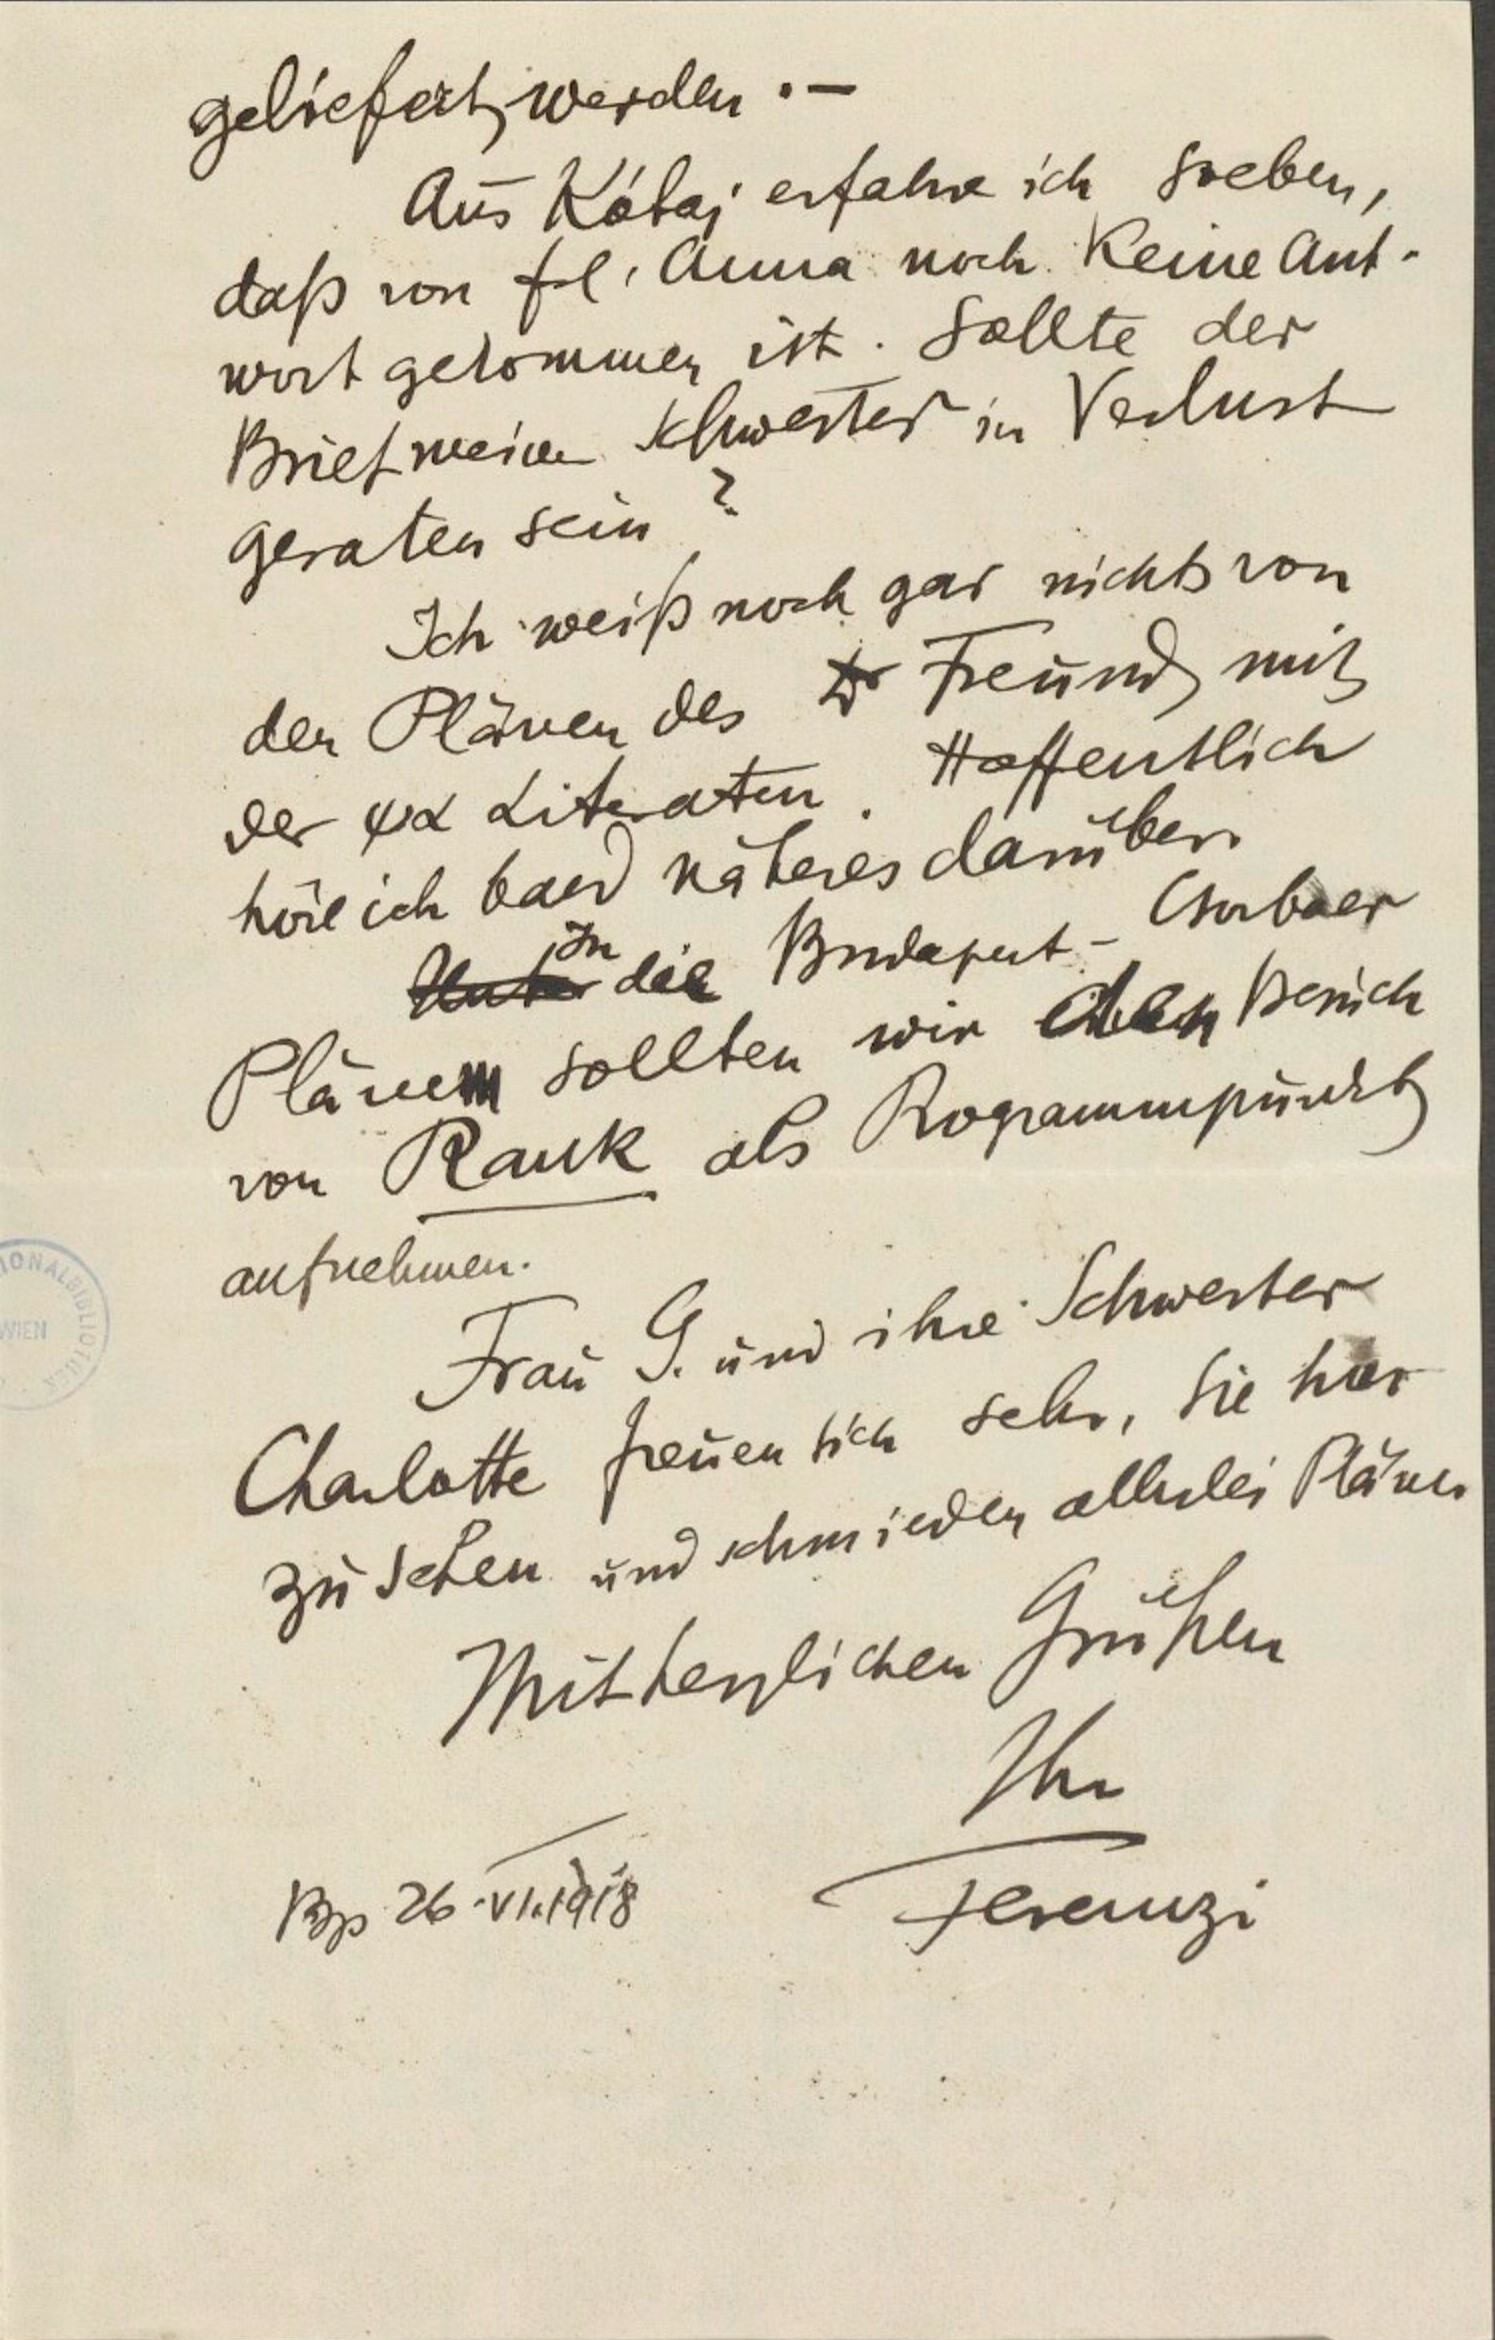 geliefert werden . —
Aus Kótaj erfahre ich soeben,
daß von frl. Anna noch keine Ant-
wort gekommen ist. Sollte der
Brief meiner Schwester in Verlust
geraten sein?
Ich weiß noch gar nichts von
den Plänen des Dr Freund mit
der ψα Literaten. Hoffentlich
höre ich bald näheres darüber.
In die Budapest - Csorbaer
Pläne sollten wir den Besuch
von Rank als Programmpunkt
aufnehmen.
Frau G. und ihre Schwester
Charlotte freuen sich sehr, Sie hier
zu sehen und schmieden allerlei Pläne.
Mit herzlichen Grüßen
Ihr
Ferenczi
Bp 26.VI.1918
IONALBIBLIOTHEK
WIEN